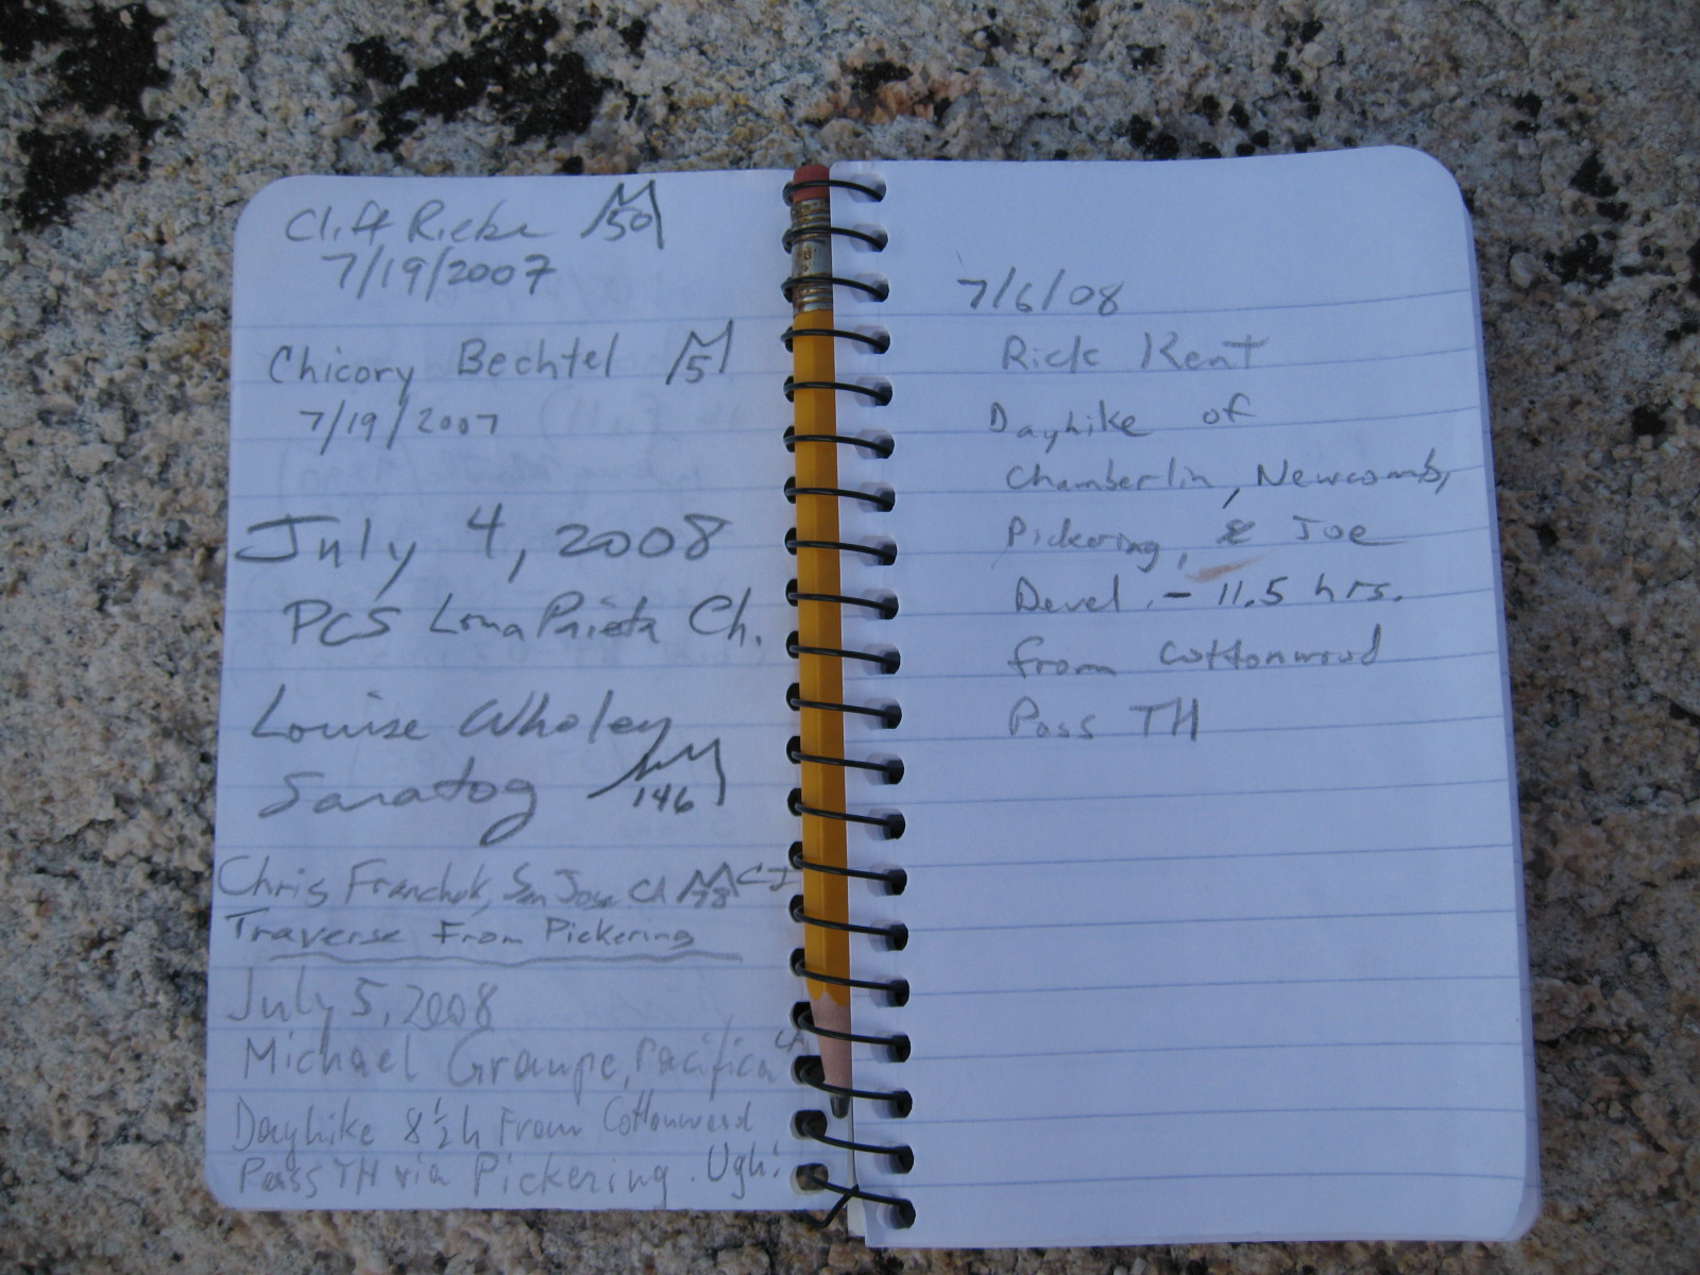 Clift Rieke 50
7/19/2007
Chicory Bechtel 51
7/19/2007
July 4, 2008
PCS Loma Prieta Ch.
Louise Wholey
Saratog 146
Chris Franchuk, San Jose CA 78 CJ
Traverse From Pickering
July 5, 2008
Michael Graupe, Pacifica CA
Dayhike 8 1/2 h From Cottonwood
Pass TH via Pickering. Ugh!
7/6/08
Rick Kent
Dayhike of
Chamberlin, Newcomb,
Pickering, & Joe
Devel. - 11.5 hrs.
from Cottonwood
Pass TH